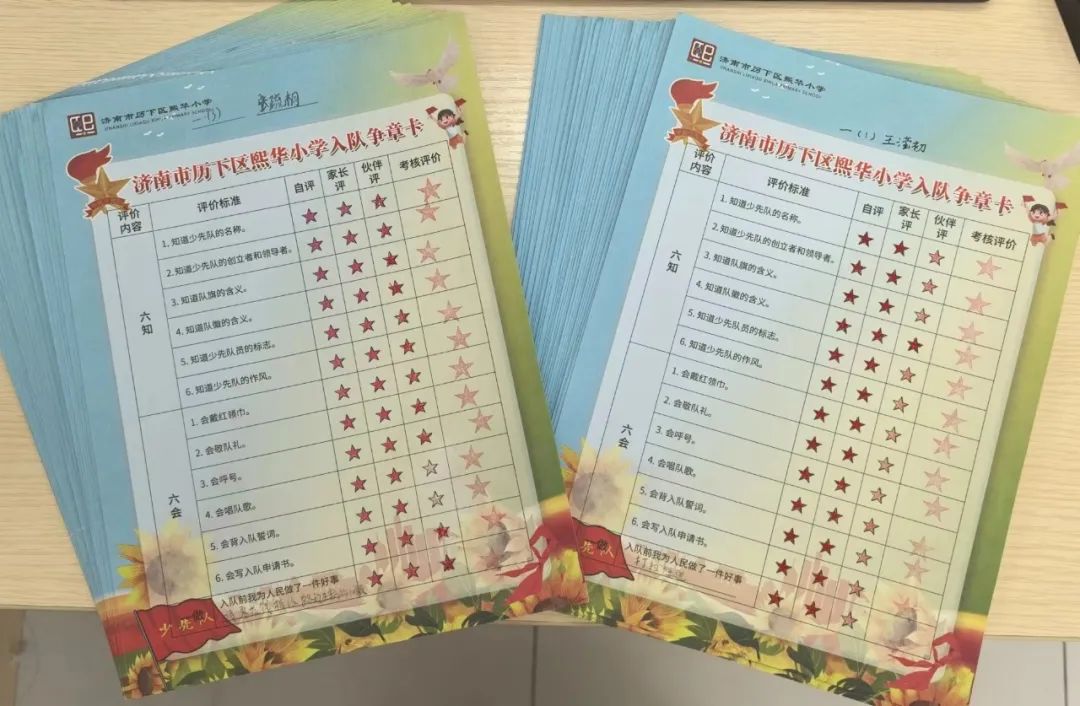 济南市历下区熙华小学
JINANSHI LIXIAQU XIHUA PRIMARY SCHOOL
一(3)
济南市历下区熙华小学入队争章卡
评价内容 评价标准 自评 家长评 伙伴评 考核评价
六知
1. 知道少先队的名称。
2. 知道少先队的创立者和领导者。
3. 知道队旗的含义。
4. 知道队徽的含义。
5. 知道少先队员的标志。
6. 知道少先队的作风。
六会
1. 会戴红领巾。
2. 会敬队礼。
3. 会呼号。
4. 会唱队歌。
5. 会背入队誓词。
6. 会写入队申请书。
入队前我为人民做了一件好事
少先队
济南市历下区熙华小学
JINANSHI LIXIAQU XIHUA PRIMARY SCHOOL
一(1) 王滢初
济南市历下区熙华小学入队争章卡
评价内容 评价标准 自评 家长评 伙伴评 考核评价
六知
1. 知道少先队的名称。
2. 知道少先队的创立者和领导者。
3. 知道队旗的含义。
4. 知道队徽的含义。
5. 知道少先队员的标志。
6. 知道少先队的作风。
六会
1. 会戴红领巾。
2. 会敬队礼。
3. 会呼号。
4. 会唱队歌。
5. 会背入队誓词。
6. 会写入队申请书。
入队前我为人民做了一件好事